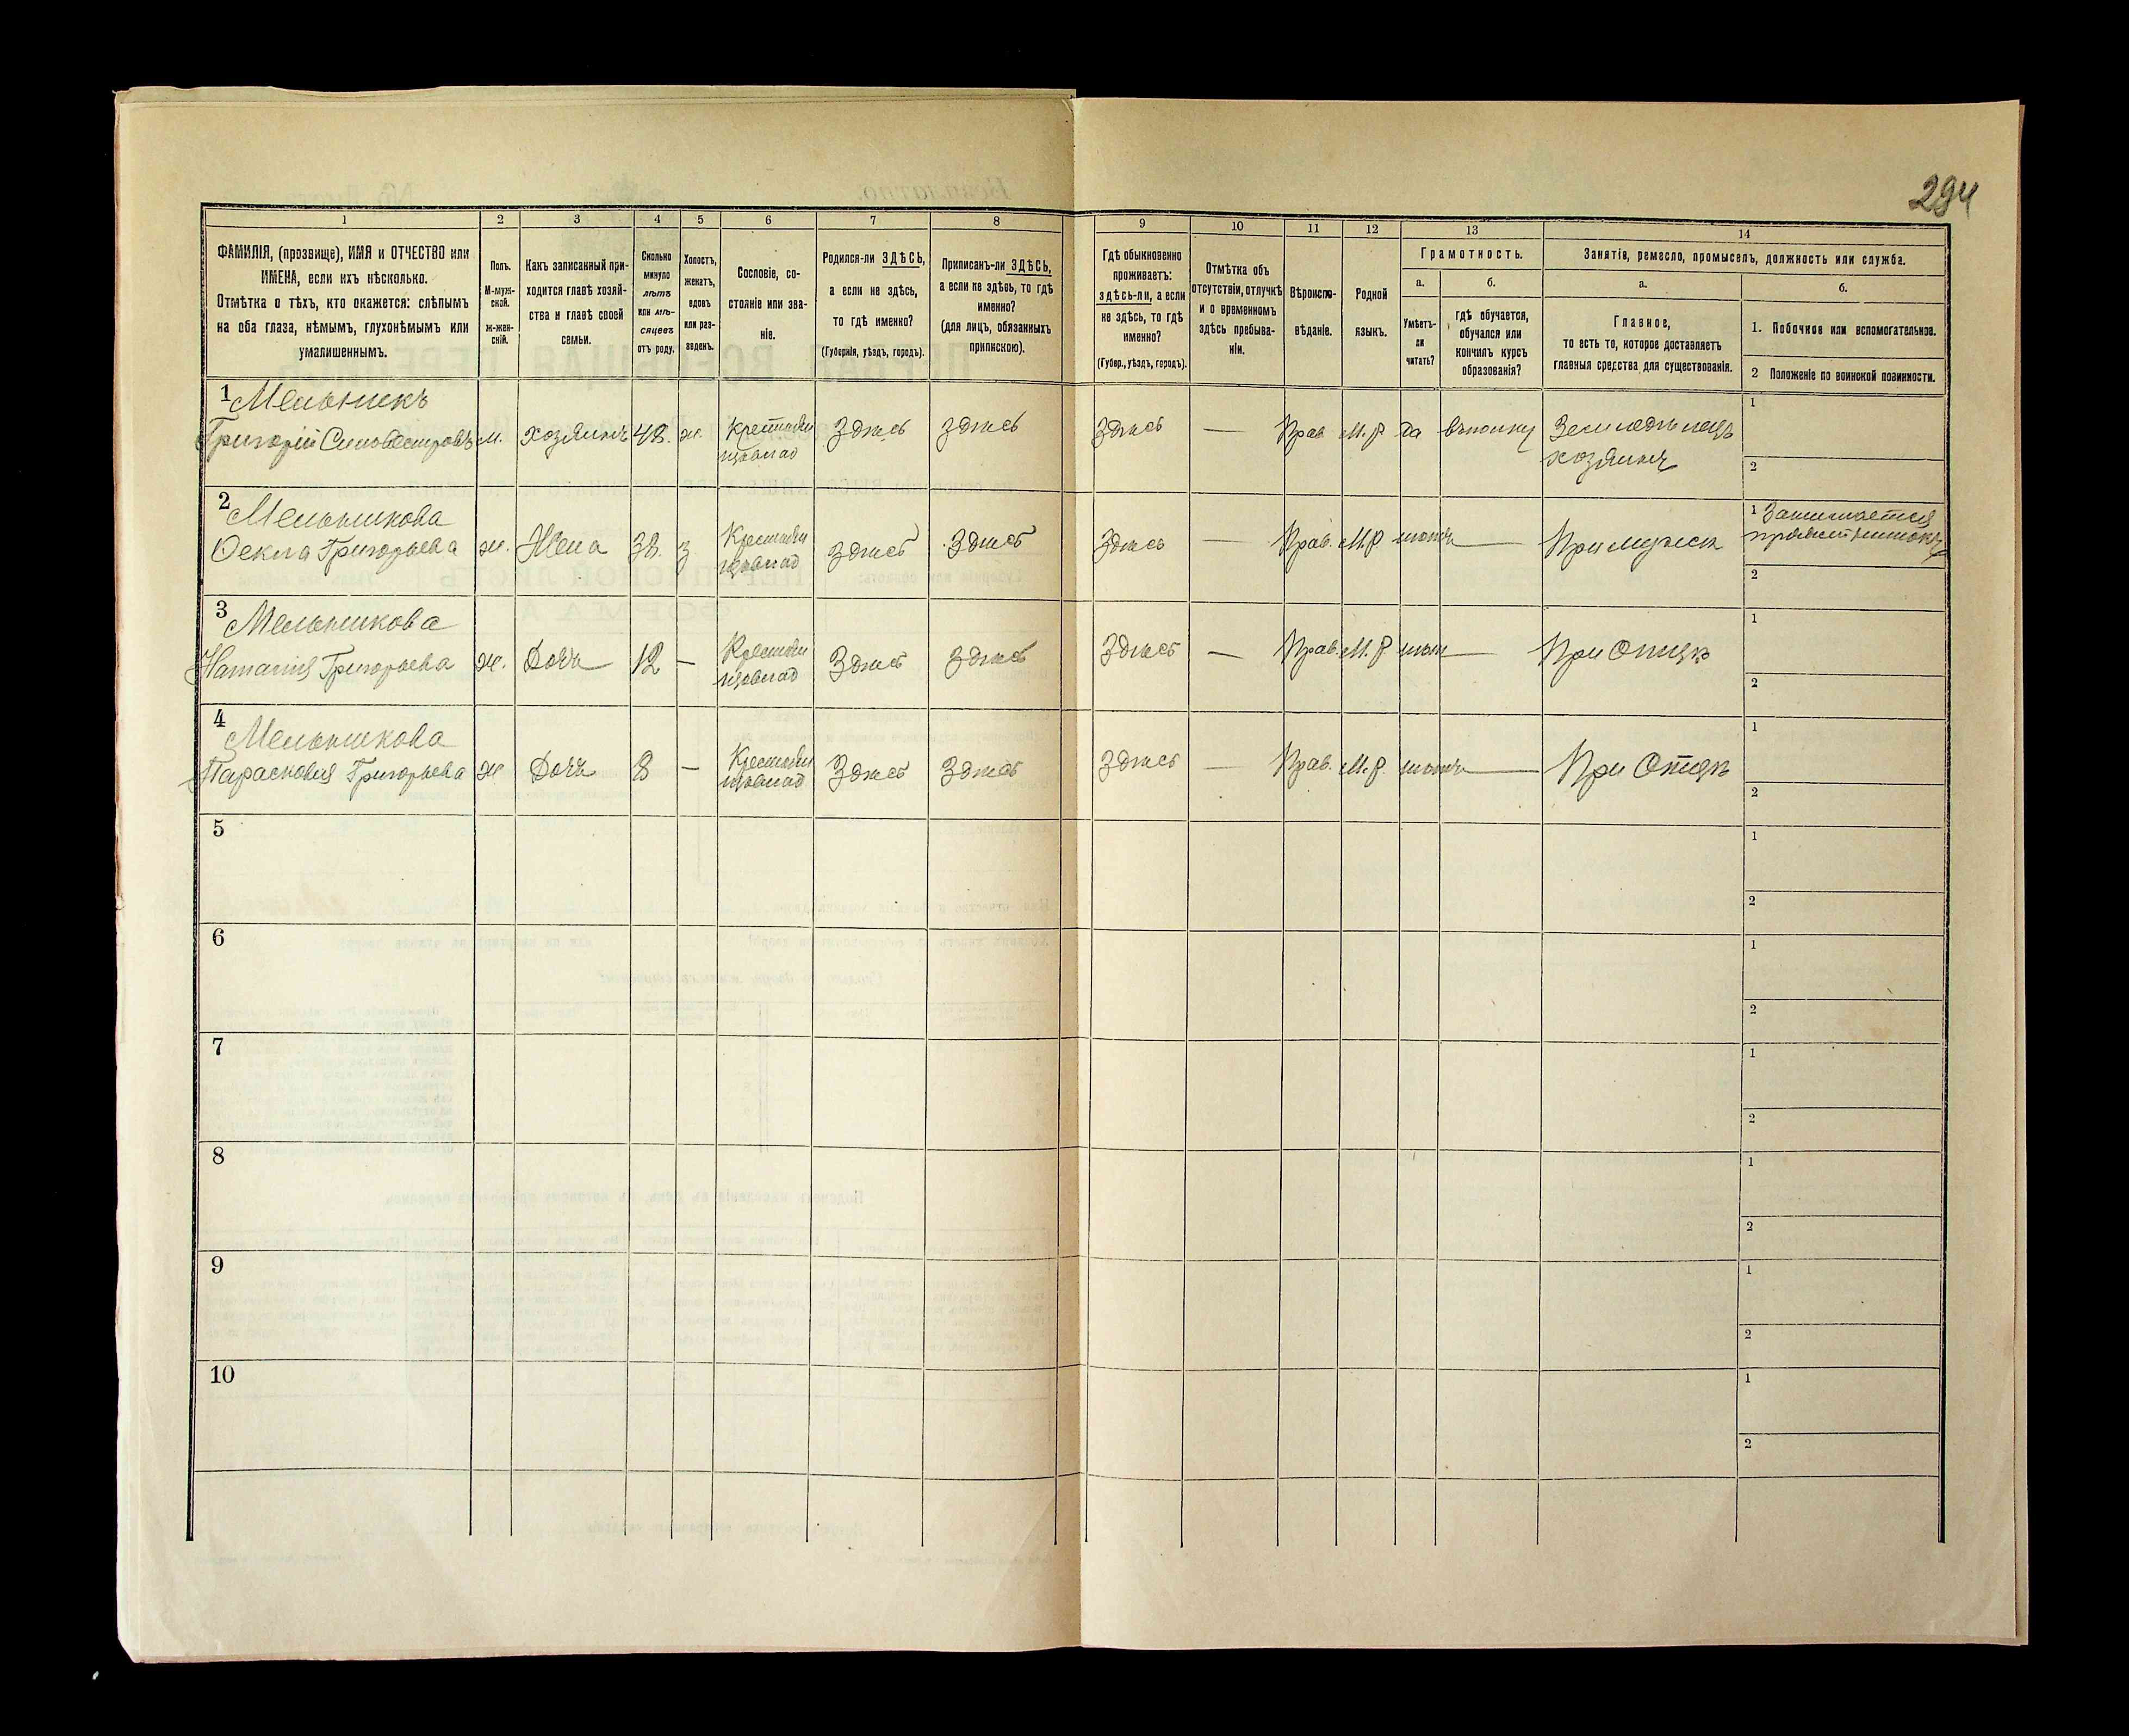 294
1
2
3
4
5
6
7
8
9
10
11
12
13
14
ФАМИЛІЯ, (прозвище), ИМЯ и ОТЧЕСТВО или
ИМЕНА, если ихъ нѣсколько.
Отмѣтка о тѣхъ, кто окажется: слѣпымъ
на оба глаза, нѣмымъ, глухонѣмымъ или
умалишеннымъ.
Полъ.
М-муж-
ской.
ж-жен-
скій.
Какъ записанный при-
ходится главѣ хозяй-
ства и главѣ своей
семьи.
Сколько
минуло
лѣтъ
или мѣ-
сяцевъ
отъ роду.
Холостъ,
женатъ,
вдовъ
или раз-
веденъ.
Сословіе, со-
стояніе или зва-
ніе.
Родился-ли ЗДѢСЬ,
а если не здѣсь,
то гдѣ именно?
(Губернія, уѣздъ, городъ).
Приписанъ-ли ЗДѢСЬ,
а если не здѣсь, то гдѣ
именно?
(для лицъ, обязанныхъ
припискою).
Гдѣ обыкновенно
проживаетъ:
здѣсь-ли, а если
не здѣсь, то гдѣ
именно?
(Губер., уѣздъ, городъ).
Отмѣтка объ
отсутствіи, отлучкѣ
и о временномъ
здѣсь пребыва-
ніи.
Вѣроиспо-
вѣданіе.
Родной
языкъ.
Грамотность.
а.
Умѣетъ-
ли
читать?
б.
гдѣ обучается,
обучался или
кончилъ курсъ
образованія?
Занятія, ремесло, промыселъ, должность или служба.
а.
Главное,
то есть то, которое доставляетъ
главныя средства для существованія.
б.
1. Побочное или вспомогательное.
2 Положеніе по воинской повинности.
1 Мельникъ
Григорій Сильвестровъ м. хозяинъ 48. ж. Здѣсь здѣсь Здѣсь — Прав М. р да Земледѣлецъ
хозяинъ
1
2
2 Мельникова
Ѳекла Григорьева ж. Жена 38. з Здѣсь Здѣсь Здѣсь — Прав. М.р — При мужѣ
1 Занимается
2
3 Мельникова
Наталія Григорьева ж. Дочь 12 — Здѣсь Здѣсь Здѣсь — Прав. М. р — При Отцѣ
1
2
4 Мельникова
Парасковія Григорьева ж Дочь 8 — Здѣсь Здѣсь Здѣсь — Прав. М. р. — При Отцѣ
1
2
5
1
2
6
1
2
7
1
2
8
1
2
9
1
2
10
1
2